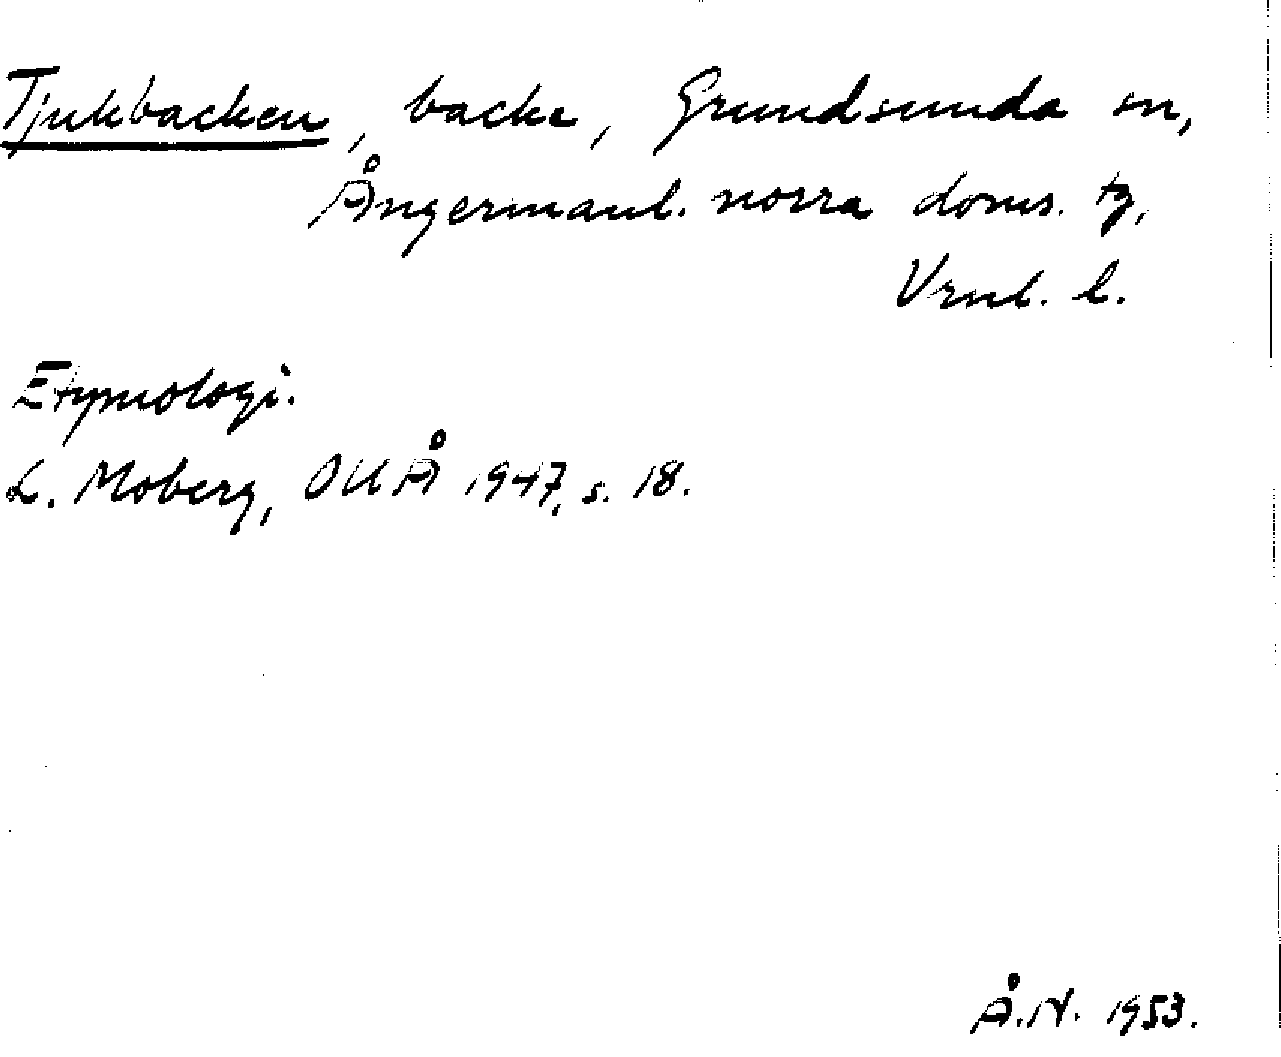 Tjukbacken, backe, Grundsunda sn,
Ångermanl. norra doms. tg,
Vrnl. l.
Etymologi.
L. Moberg, OUÅ 1947, s. 18.
Å.N. 1953.